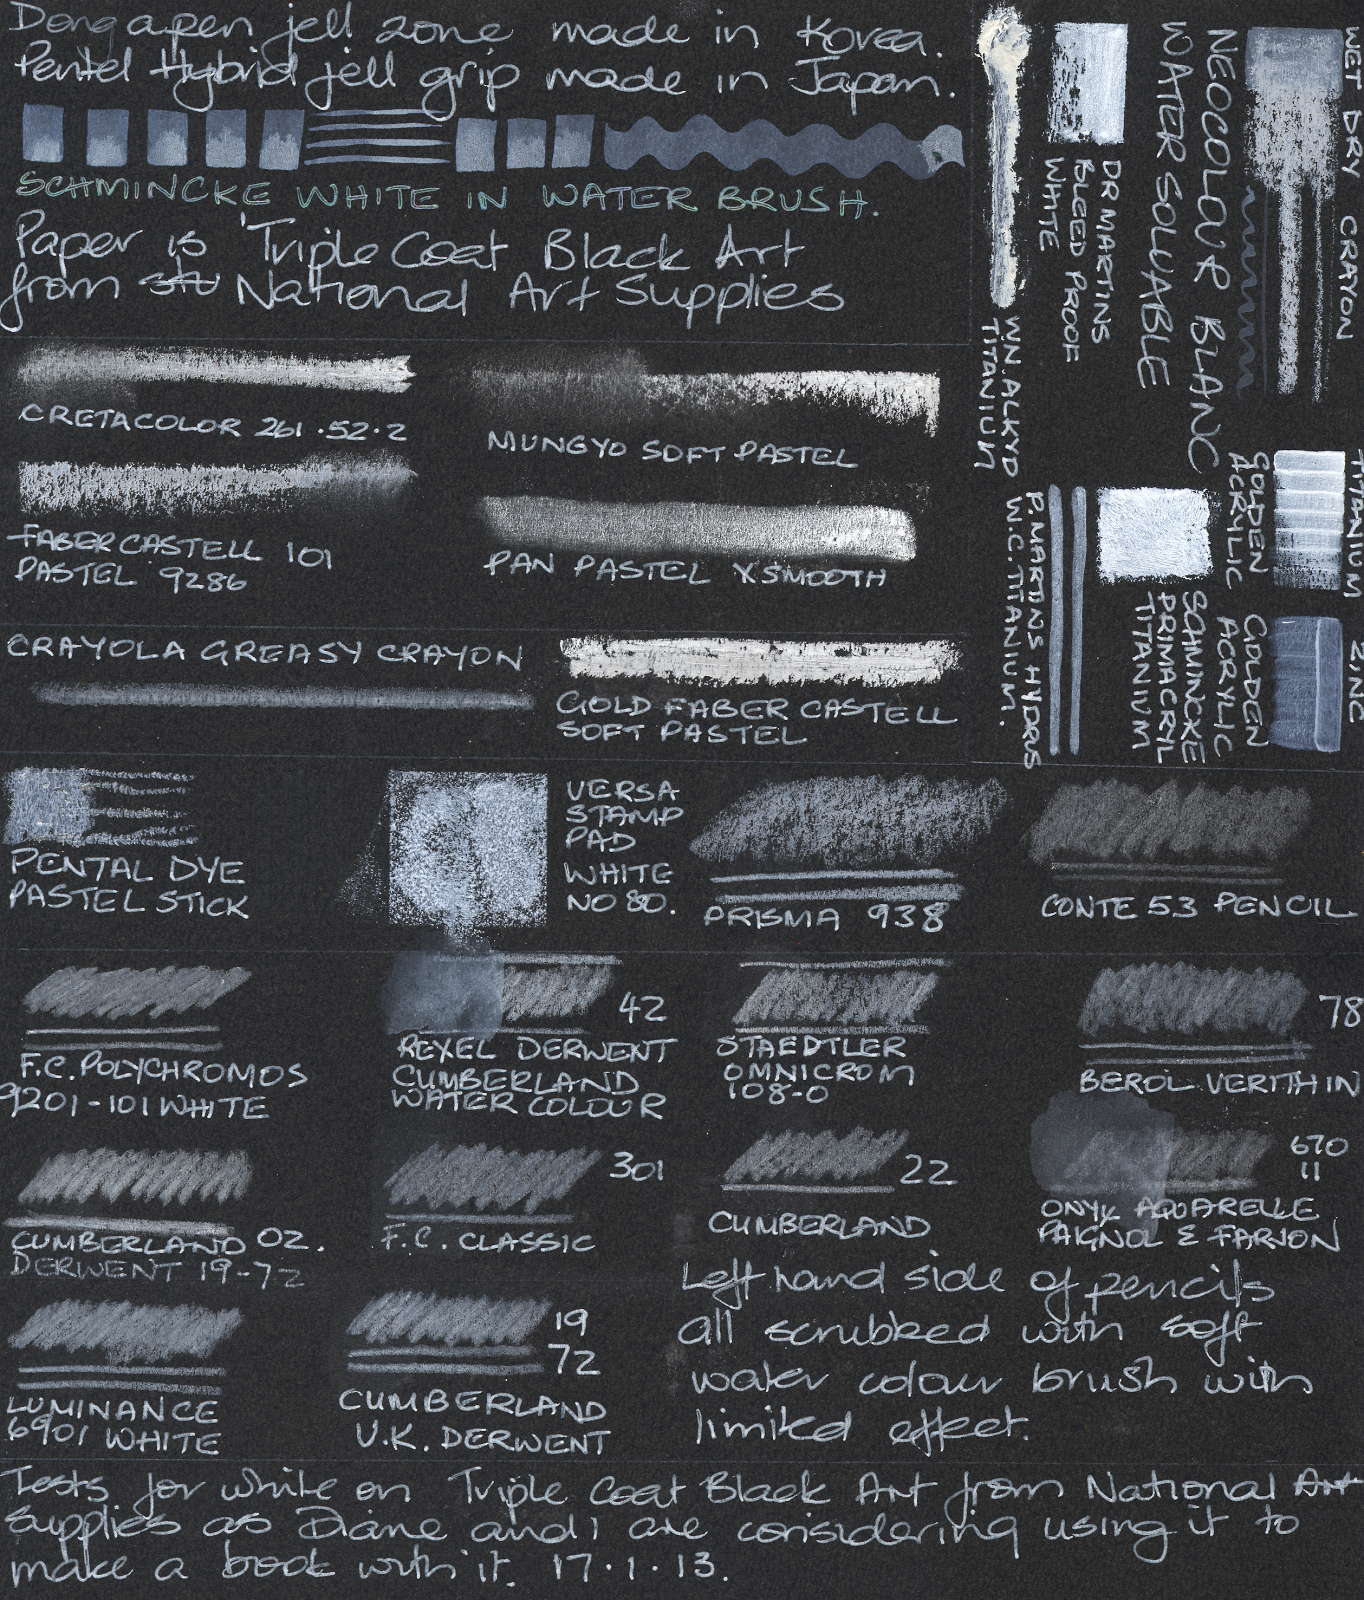 Dong a pen jell zone made in Korea.
Pentel Hybrid jell grip made in Japan.
SCHMINCKE WHITE IN WATER BRUSH.
Paper is 'Triple Coat Black Art
from National Art Supplies
CRETACOLOR 261.52.2
MUNGYO SOFT PASTEL
FABER CASTELL 101
PASTEL 9286
PAN PASTEL XSMOOTH
CRAYOLA GREASY CRAYON
GOLD FABER CASTELL
SOFT PASTEL
WET DRY CRAYON
NEOCOLOUR BLANC
WATER SOLUVABLE
DR MARTINS
BLEED PROOF
WHITE
W.N. ALKYD
TITANIUM
TITANIUM
GOLDEN
ACRYLIC
ZINC
GOLDEN
ACRYLIC
SCHMINCKE
PRIMACRYL
TITANIUM
P. MARTINS HYDRUS
W.C. TITANIUM.
PENTAL DYE
PASTEL STICK
VERSA
STAMP
PAD
WHITE
NO 80.
PRISMA 938
CONTE 53 PENCIL
F.C. POLYCHROMOS
9201-101 WHITE
42
REXEL DERWENT
CUMBERLAND
WATER COLOUR
STAEDTLER
OMNICROM
108-0
78
BEROL VERITHIN
CUMBERLAND 02.
DERWENT 19-72
301
F.C. CLASSIC
22
CUMBERLAND
670
11
ONYX AQUARELLE
PAIGNOL & FARJON
LUMINANCE
6901 WHITE
19
72
CUMBERLAND
U.K. DERWENT
Left hand side of pencils
all scrubbed with soft
water colour brush with
limited effect.
Tests for white on Triple Coat Black Art from National Art
Supplies as Diane and I are considering using it to
make a book with it. 17.1.13.